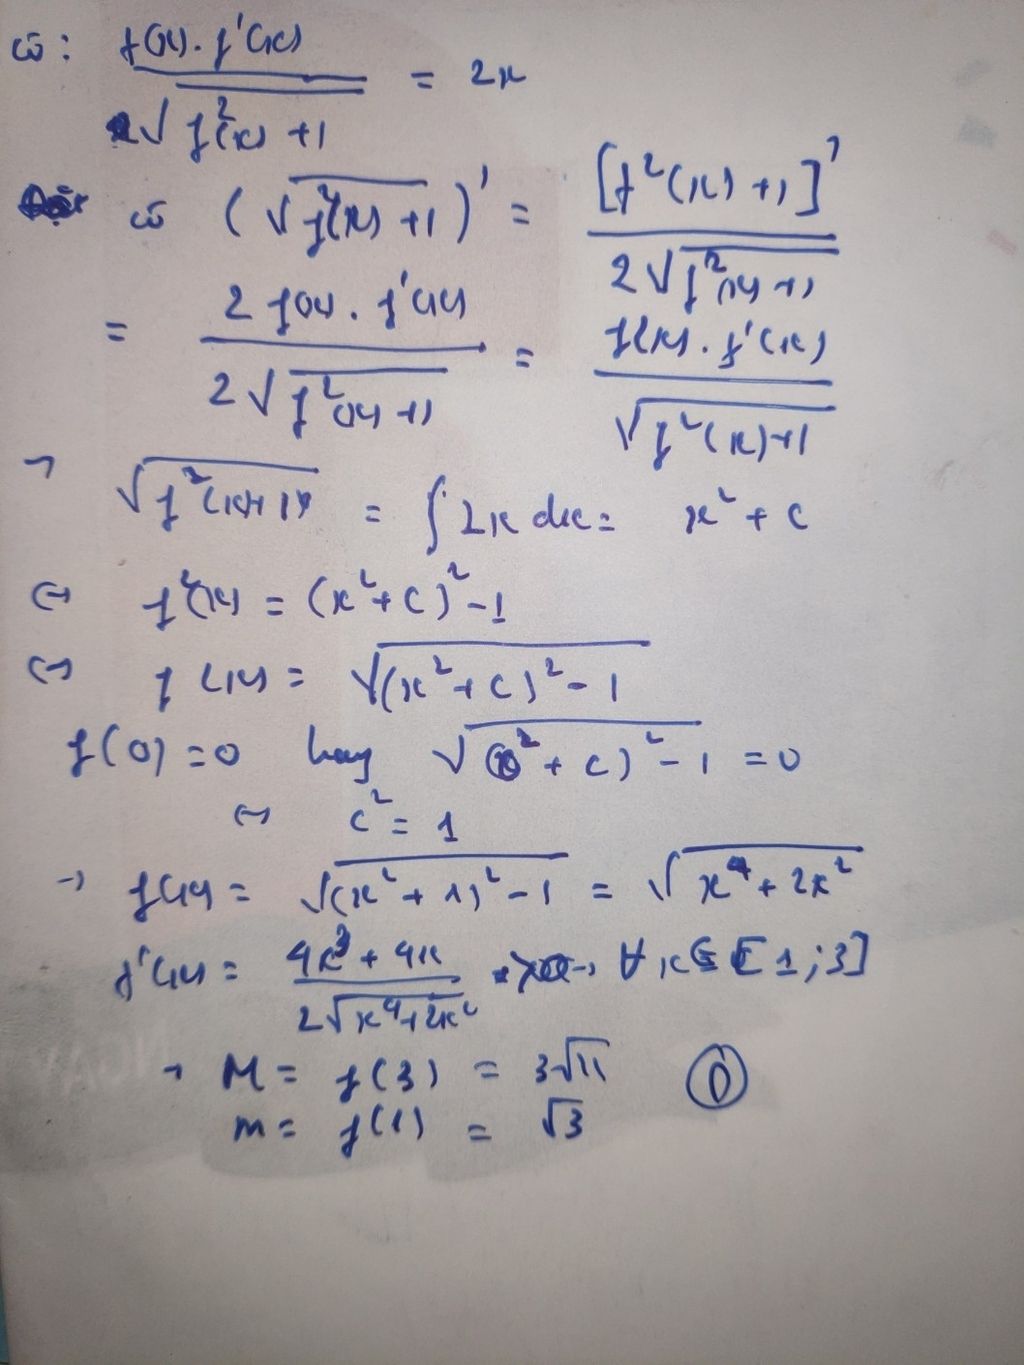 có: f(x).f'(x) / √(f²(x)+1) = 2x
có (√(f²(x)+1))' = [f²(x)+1]' / 2√(f²(x)+1)
= 2f(x).f'(x) / 2√(f²(x)+1) = f(x).f'(x) / √(f²(x)+1)
→ √(f²(x)+1) = ∫2x dx = x² + C
↔ f²(x) = (x²+C)² - 1
↔ f(x) = √((x²+C)² - 1)
f(0) = 0 hay √((0²+C)² - 1) = 0
↔ C² = 1
→ f(x) = √((x²+1)² - 1) = √(x⁴+2x²)
f'(x) = (4x³+4x) / 2√(x⁴+2x²) ∀x ∈ [1;3]
→ M = f(3) = 3√11 Ⓓ
m = f(1) = √3